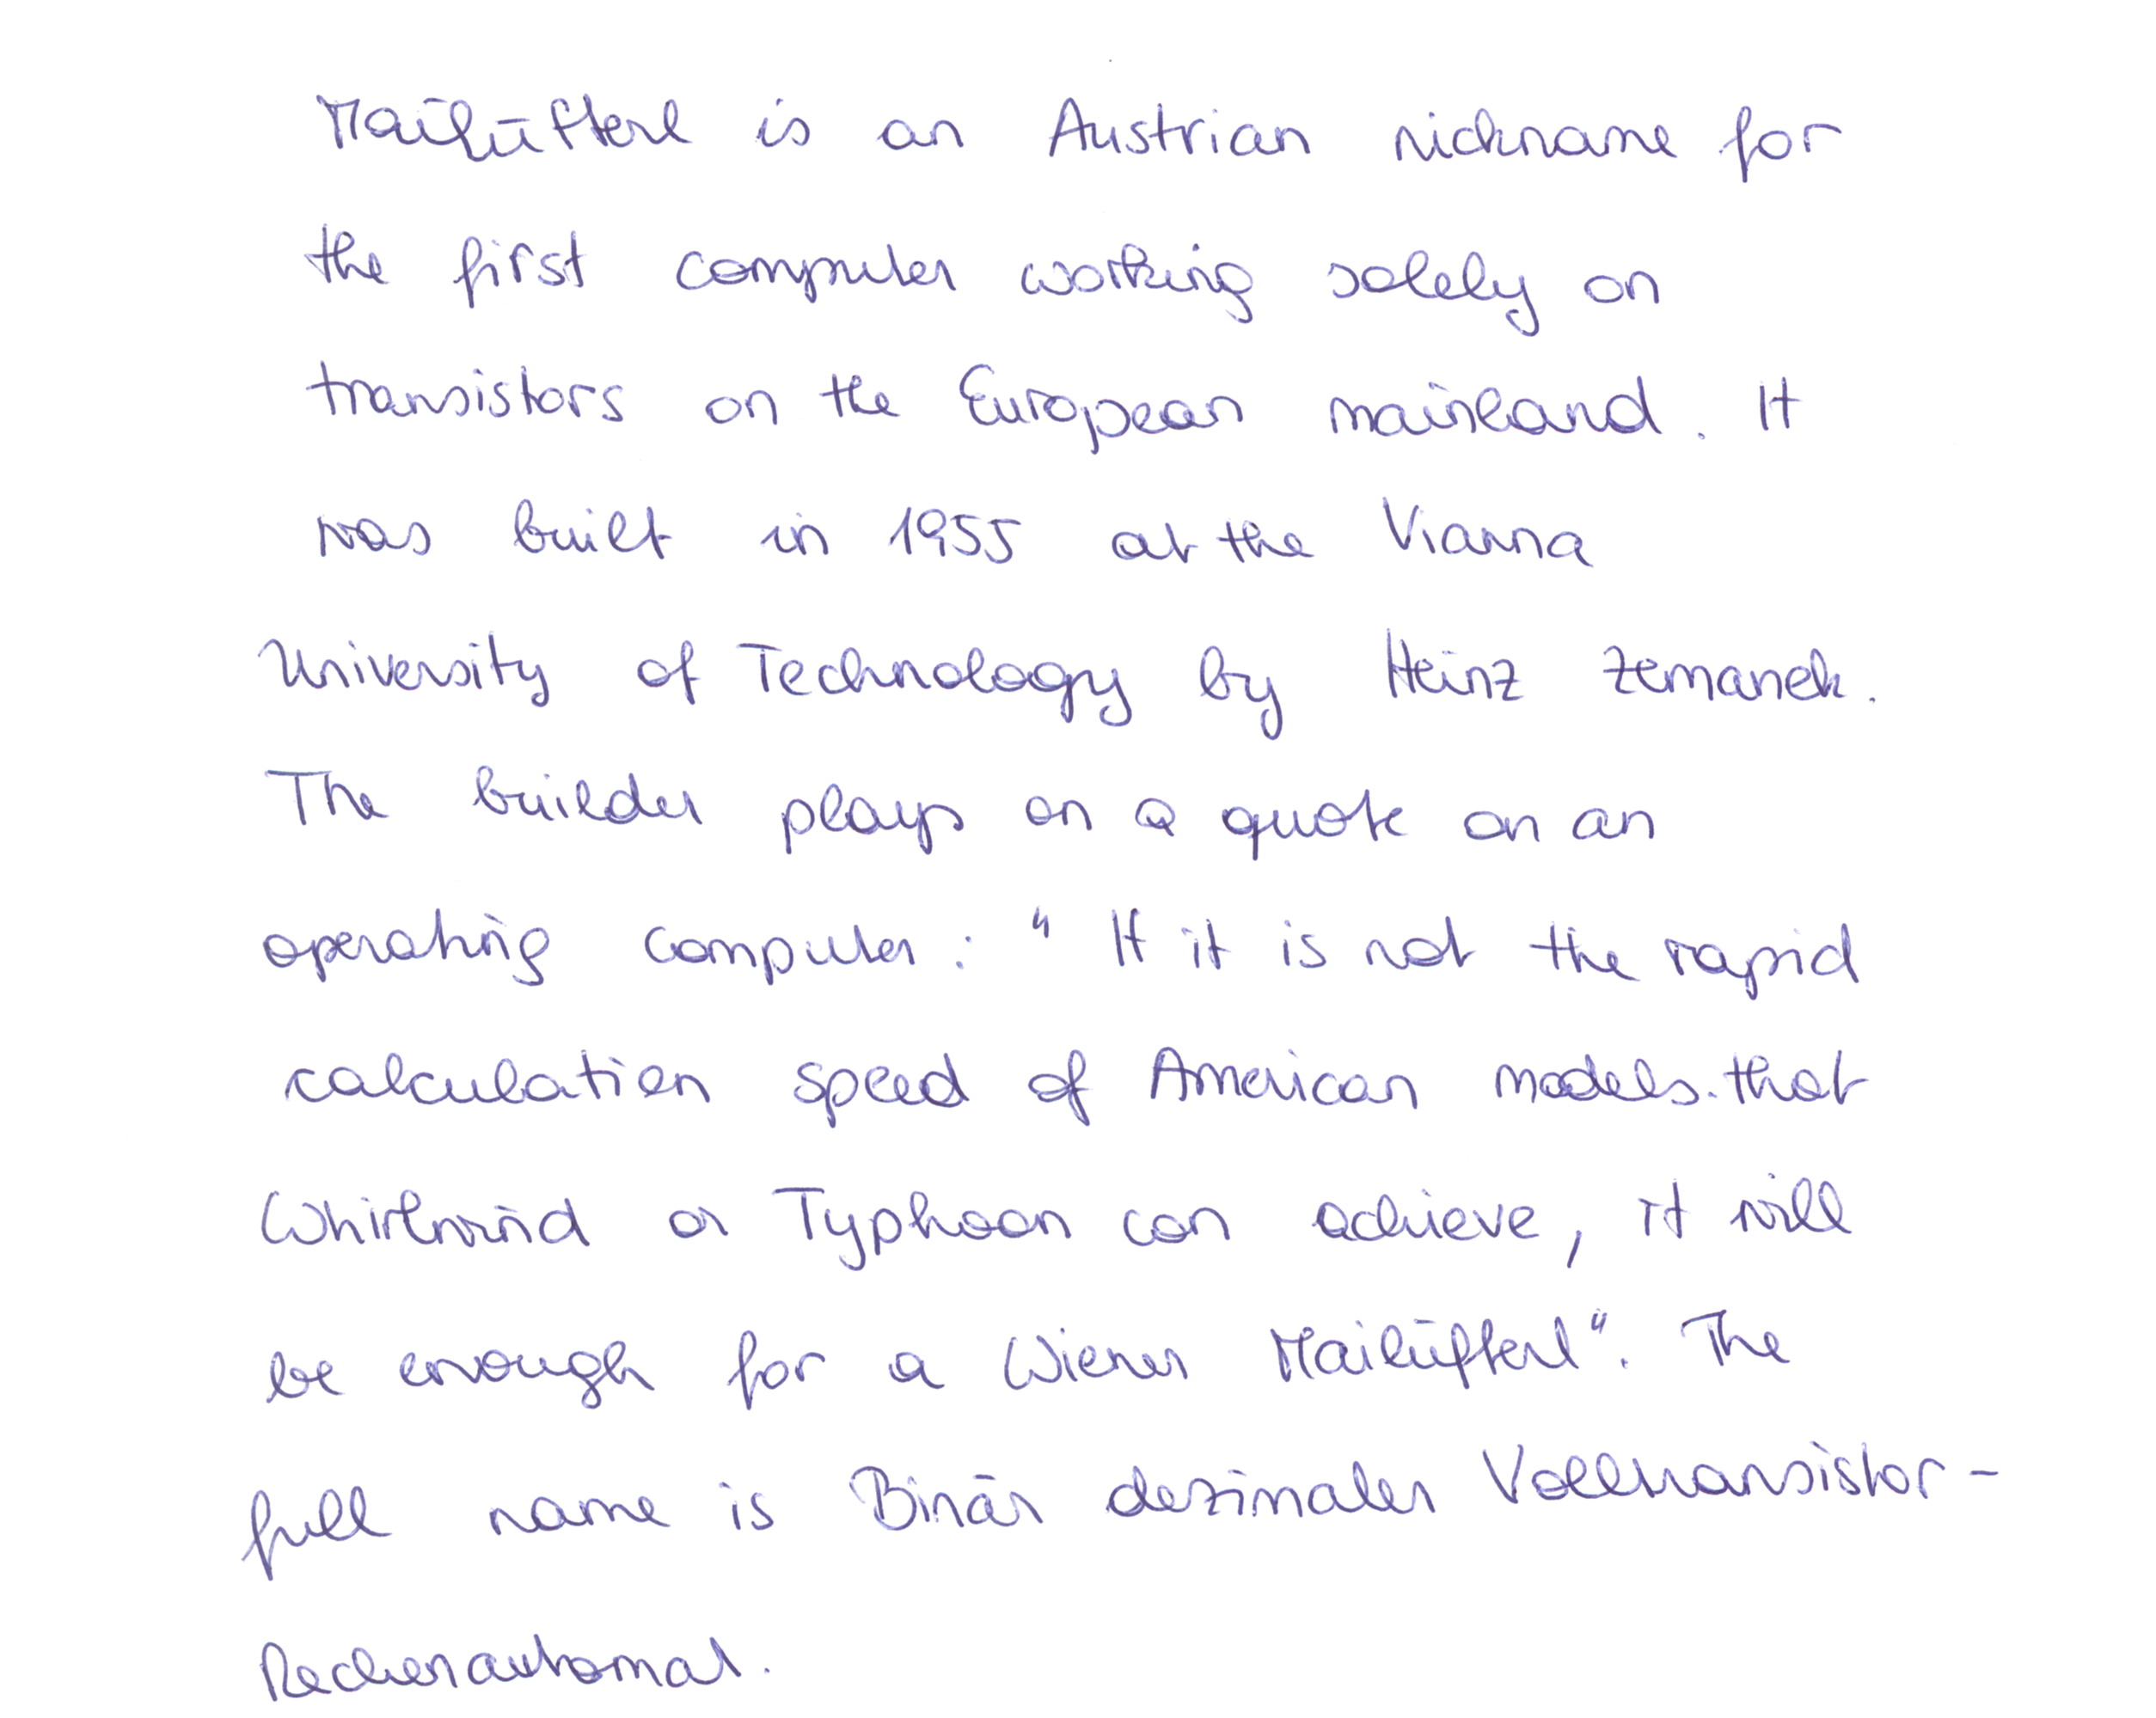 Mailüfterl is an Austrian nickname for
the first computer working solely on
transistors on the European mainland. It
was built in 1955 at the Vianna
University of Technology by Heinz Zemanek.
The builder plays on a quote on an
operating computer: "If it is not the rapid
calculation speed of American models.that
Whirlwind or Typhoon can achieve, it will
be enough for a Wiener Mailüfterl". The
full name is Binär dezimaler Volltransistor-
Rechenautomat.